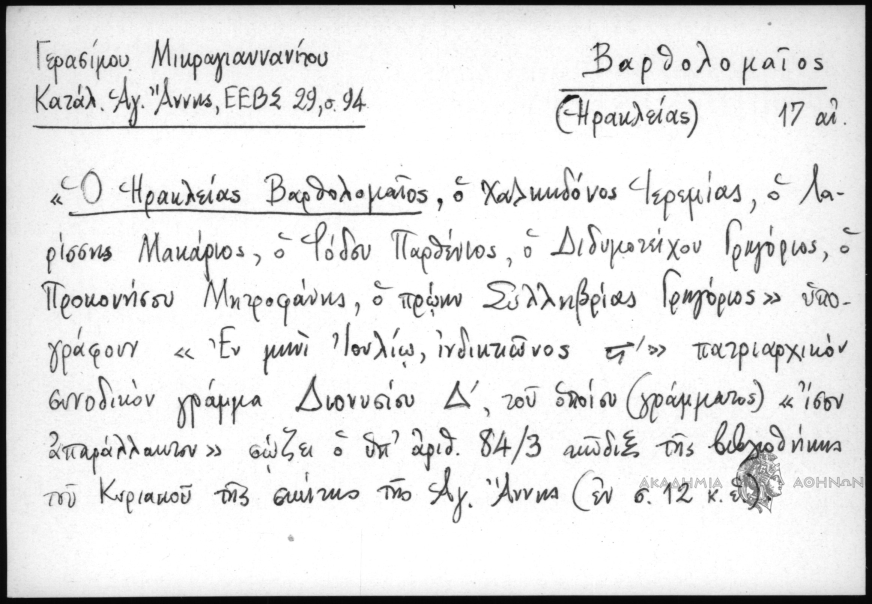 Γερασίμου Μικραγιαννανίτου
Κατάλ. Ἁγ. Ἄννης, ΕΕΒΣ 29, σ. 94
Βαρθολομαῖος
(Ἡρακλείας) 17 αἰ.
«Ὁ Ἡρακλείας Βαρθολομαῖος, ὁ Χαλκηδόνος Ἱερεμίας, ὁ Λα-
ρίσσης Μακάριος, ὁ Ῥόδου Παρθένιος, ὁ Διδυμοτείχου Γρηγόριος, ὁ
Προκονήσου Μητροφάνης, ὁ πρώην Συλληβρίας Γρηγόριος» ὑπο-
γράφουν «Ἐν μηνὶ Ἰουλίῳ, ἰνδικτιῶνος πατριαρχικὸν
συνοδικὸν γράμμα Διονυσίου Δ΄, τοῦ ὁποίου (γράμματος) «ἴσον
ἀπαράλλακτον» σῴζει ὁ ὑπ' ἀριθ. 84/3 κῶδιξ τῆς βιβλιοθήκης
τοῦ Κυριακοῦ τῆς σκήτης τῆς Ἁγ. Ἄννης (ἐν σ. 12 κ. ἑ).
ΑΚΑΔΗΜΙΑ ΑΘΗΝΩΝ